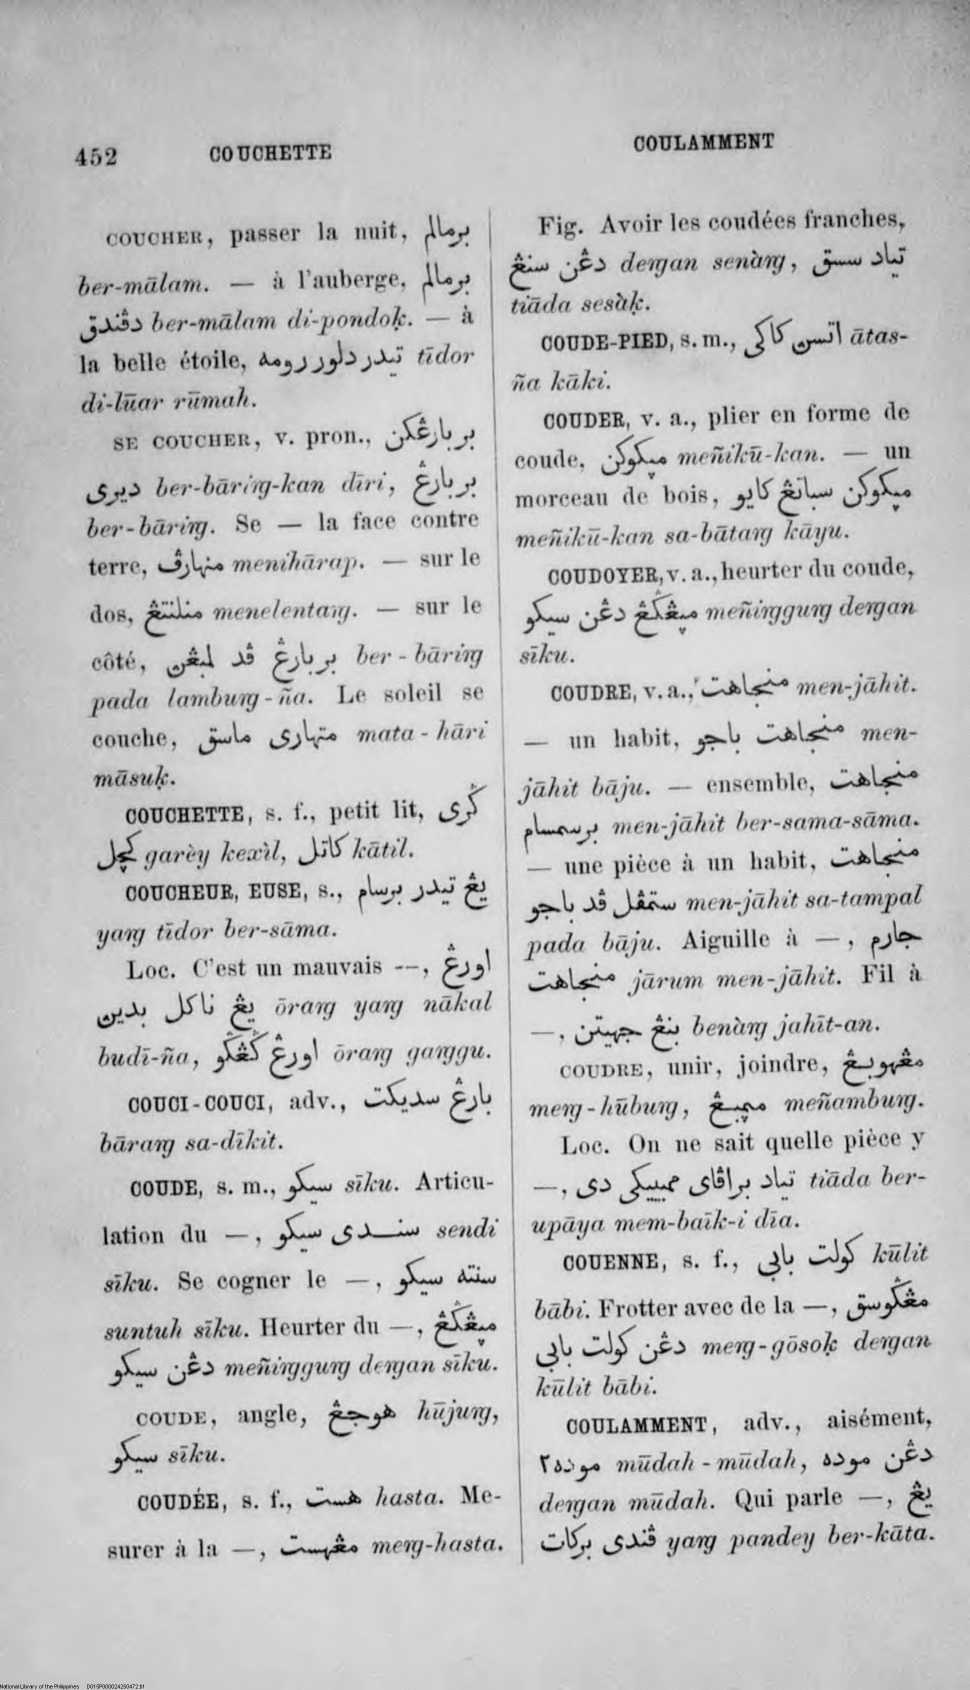 452 COUCHETTE
COULAMMENT
COUCHER, passer la nuit, برمالم
ber-mālam. — à l'auberge, برمالم
دڤندق ber-mālam di-pondoḳ. — à
la belle étoile, تيدر دلور رومه tīdor
di-lūar rūmah.
SE COUCHER, v. pron., بربارڠكن
ديري ber-bāring-kan dīri, بربارڠ
ber-bāring. Se — la face contre
terre, منهارڤ menihārap. — sur le
dos, منلنتڠ menelentang. — sur le
côté, بربارڠ ڤد لمبڠن ber-bāring
pada lambung-ña. Le soleil se
couche, متهاري ماسق mata-hāri
māsuḳ.
COUCHETTE, s. f., petit lit, ݢري
كچل garèy kexìl, كاتل kātil.
COUCHEUR, EUSE, s., يڠ تيدر برسام
yang tīdor ber-sāma.
Loc. C'est un mauvais —, اورڠ
يڠ ناكل بدين ōrang yang nākal
budī-ña, اورڠ ݢڠݢو ōrang ganggu.
COUCI-COUCI, adv., بارڠ سديكت
bārang sa-dīkit.
COUDE, s. m., سيكو sīku. Articu-
lation du —, سندي سيكو sendi
sīku. Se cogner le —, سنته سيكو
suntuh sīku. Heurter du —, مڽڠݢڠ
دڠن سيكو meñinggung dengan sīku.
COUDE, angle, هوجڠ hūjung,
سيكو sīku.
COUDÉE, s. f., هست hasta. Me-
surer à la —, مڠهست meng-hasta.
Fig. Avoir les coudées franches,
دڠن سنڠ dengan senàng, تياد سسق
tiāda sesàḳ.
COUDE-PIED, s. m., اتسن كاكي ātas-
ña kāki.
COUDER, v. a., plier en forme de
coude, مڽكوكن meñikū-kan. — un
morceau de bois, مڽكوكن سباتڠ كايو
meñikū-kan sa-bātang kāyu.
COUDOYER, v. a., heurter du coude,
مڽڠݢڠ دڠن سيكو meñinggung dengan
sīku.
COUDRE, v. a., منجاهت men-jāhit.
— un habit, منجاهت باجو men-
jāhit bāju. — ensemble, منجاهت
برسمسام men-jāhit ber-sama-sāma.
— une pièce à un habit, منجاهت
ستمڤل ڤد باجو men-jāhit sa-tampal
pada bāju. Aiguille à —, جارم
منجاهت jārum men-jāhit. Fil à
—, بنڠ جهيتن benàng jahīt-an.
COUDRE, unir, joindre, مڠهوبڠ
meng-hūbung, مڽمبڠ meñambung.
Loc. On ne sait quelle pièce y
—, تياد براڤاي ممبيكي دي tiāda ber-
upāya mem-baīk-i dīa.
COUENNE, s. f., كولت بابي kūlit
bābi. Frotter avec de la —, مڠݢوسق
دڠن كولت بابي meng-gōsoḳ dengan
kūlit bābi.
COULAMMENT, adv., aisément,
موده٢ mūdah-mūdah, دڠن موده
dengan mūdah. Qui parle —, يڠ
ڤندي بركات yang pandey ber-kāta.
National Library of the Philippines